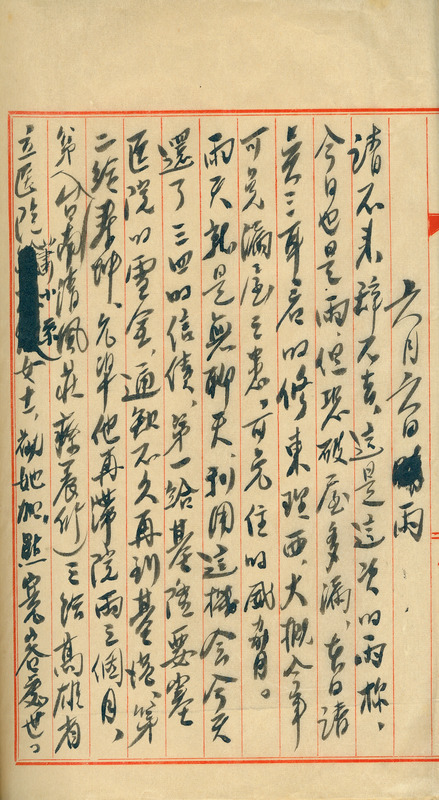 六月六日 雨
請不来、辞不去、這是這次的雨林、
今日也是雨、但恐破屋多漏、去日請
吳三耳君的修東理西、大概今年
可免漏屋之患、可免住的威脅。
雨天就是無聊天、利用這機会今天
還了三四的信債、第一給基隆要塞
医院的雪金、通知不久再到基隆、第
二給秉坤、允準他再滞院両三個月、
第入台南清風莊療養所）三給高雄省
立医院 蕭小菜女士、勸她加點寬容處世。